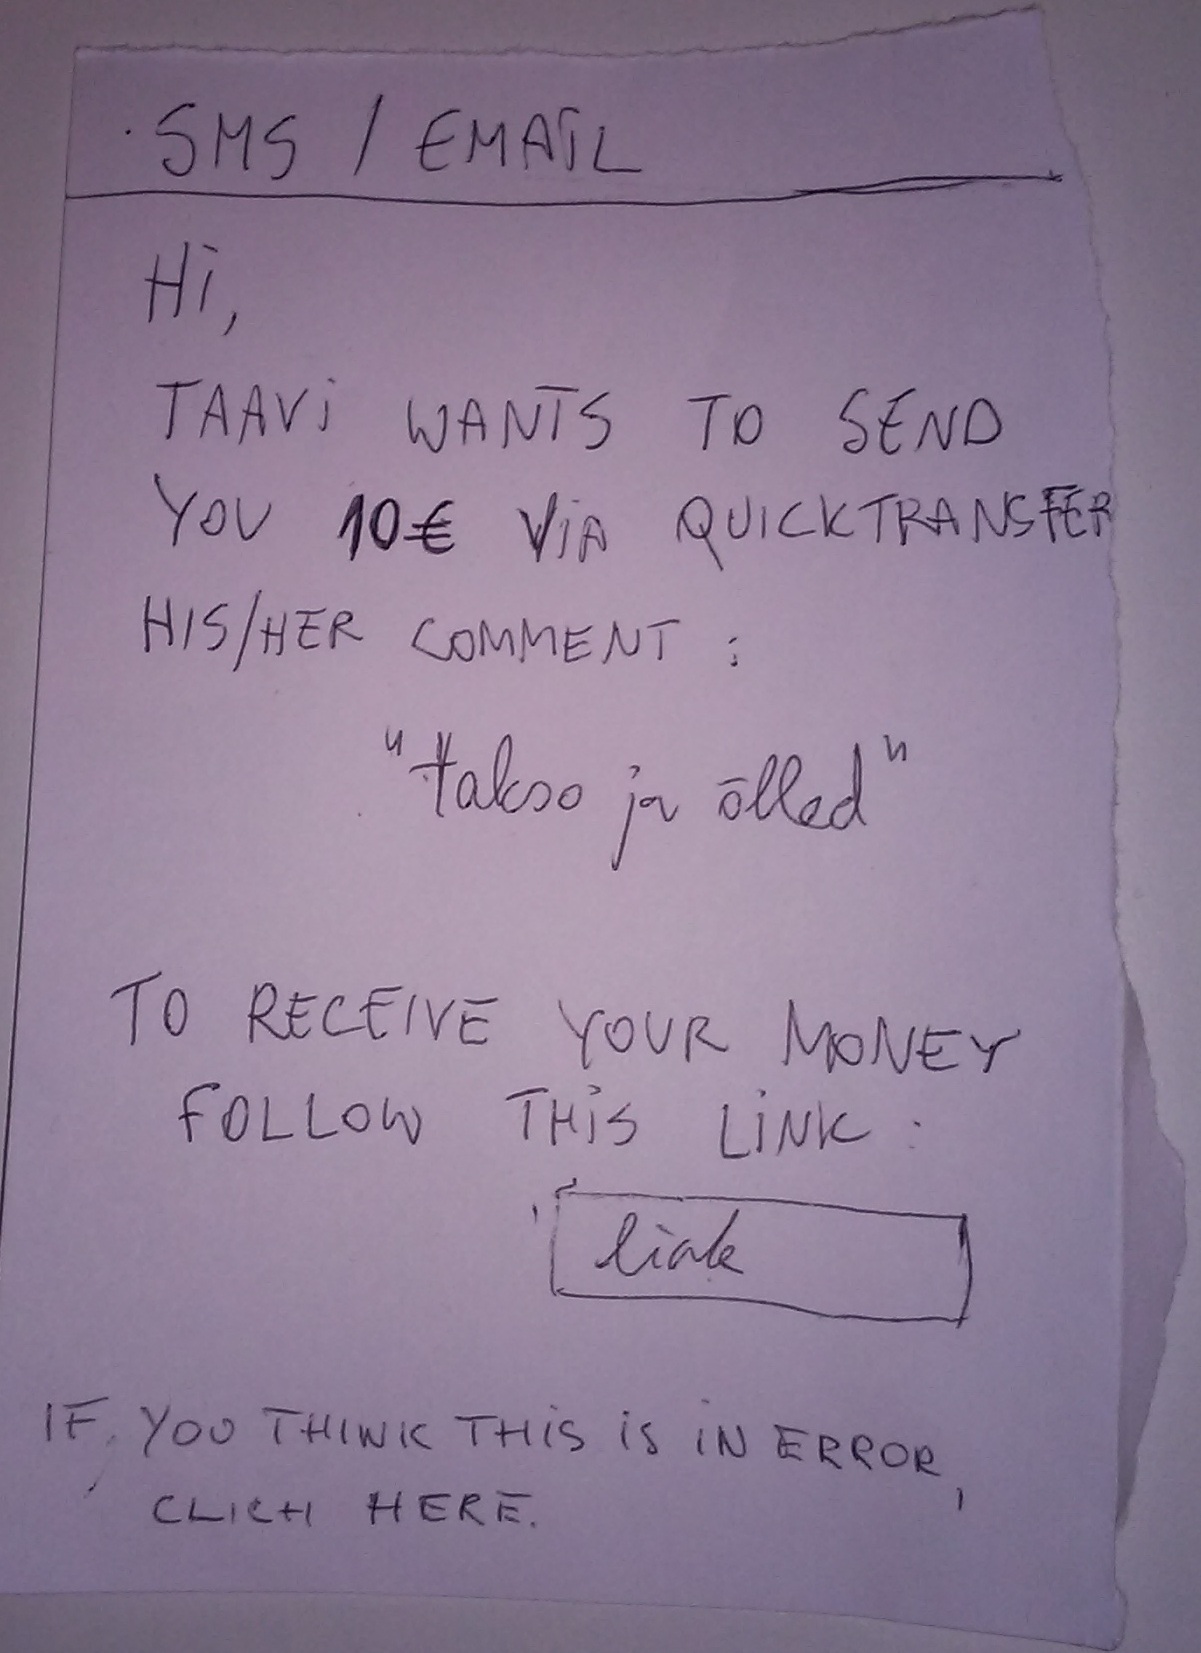 SMS / EMAIL
Hi,
TAAVI WANTS TO SEND
YOU 10€ VIA QUICKTRANSFER
HIS/HER COMMENT :
"takso ja õlled"
TO RECEIVE YOUR MONEY
FOLLOW THIS LINK :
link
IF YOU THINK THIS IS IN ERROR,
CLICK HERE.